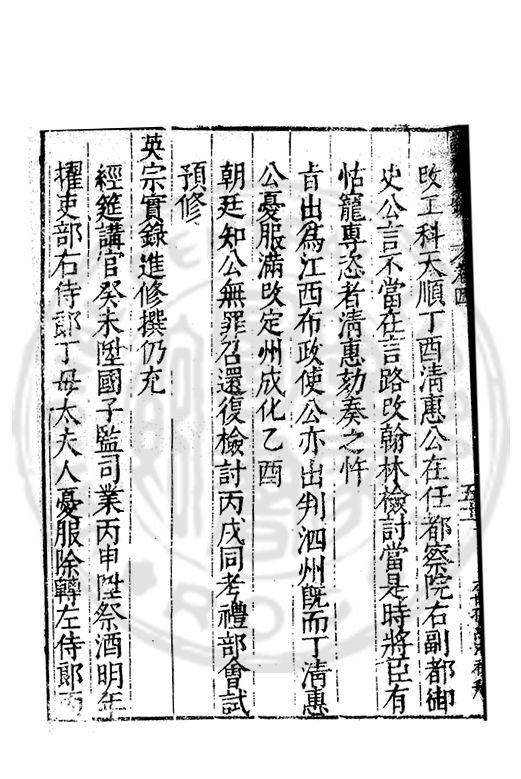 改工科天順丁酉清惠公在任都察院右副都御
史公言不當在言路改翰林檢討當是時將臣有
怙寵專恣者清惠劾奏之忤
旨出為江西布政使公亦出判泗州既而丁清惠
公憂服滿改定州成化乙酉
朝廷知公無罪召還復檢討丙戌同考禮部會試
預修
英宗實錄進修撰仍充
經筵講官癸未陞國子監司業丙申陞祭酒明年
擢吏部右侍郎丁母太夫人憂服除轉左侍郎丙